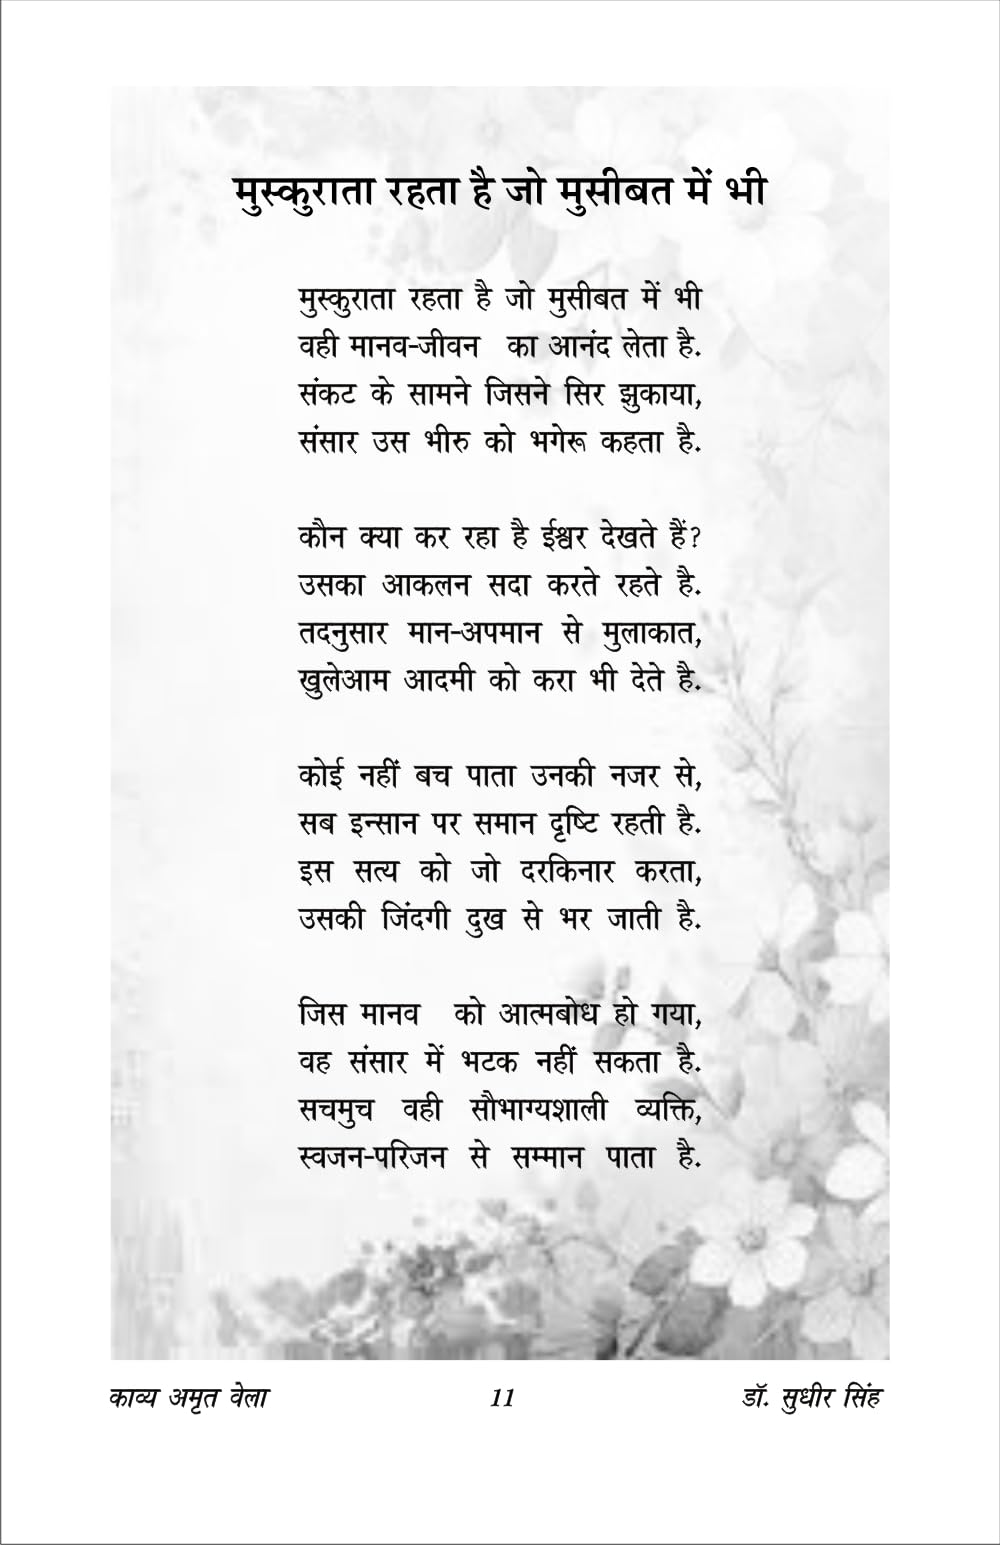 मुस्कुराता रहता है जो मुसीबत में भी
मुस्कुराता रहता है जो मुसीबत में भी
वही मानव-जीवन का आनंद लेता है.
संकट के सामने जिसने सिर झुकाया,
संसार उस भीरु को भगेरू कहता है.
कौन क्या कर रहा है ईश्वर देखते हैं?
उसका आकलन सदा करते रहते है.
तदनुसार मान-अपमान से मुलाकात,
खुलेआम आदमी को करा भी देते है.
कोई नहीं बच पाता उनकी नजर से,
सब इन्सान पर समान दृष्टि रहती है.
इस सत्य को जो दरकिनार करता,
उसकी जिंदगी दुख से भर जाती है.
जिस मानव को आत्मबोध हो गया,
वह संसार में भटक नहीं सकता है.
सचमुच वही सौभाग्यशाली व्यक्ति,
स्वजन-परिजन से सम्मान पाता है.
काव्य अमृत वेला 11 डॉ. सुधीर सिंह